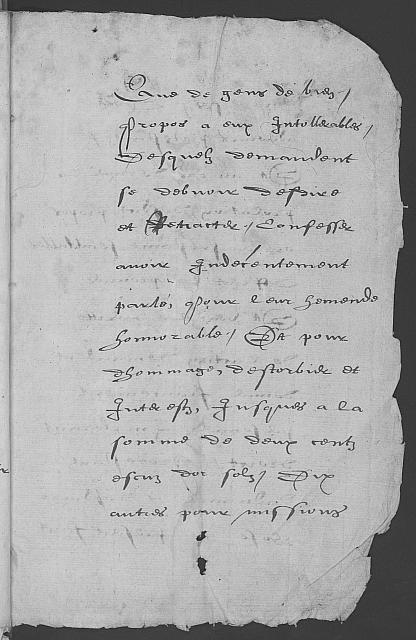 Que de gens de bien /
propos a eux Intollerables /
Desquelz demandent
se debvoir desdire
et Retracter / Confesser
avoir Indecentement
parlé, pour leur hemende
honnorable / Et pour
dhommage, destorbier et
Interestz, Jusques a la
somme de deux centz
escuz dor solz / Dix
autres pour missions